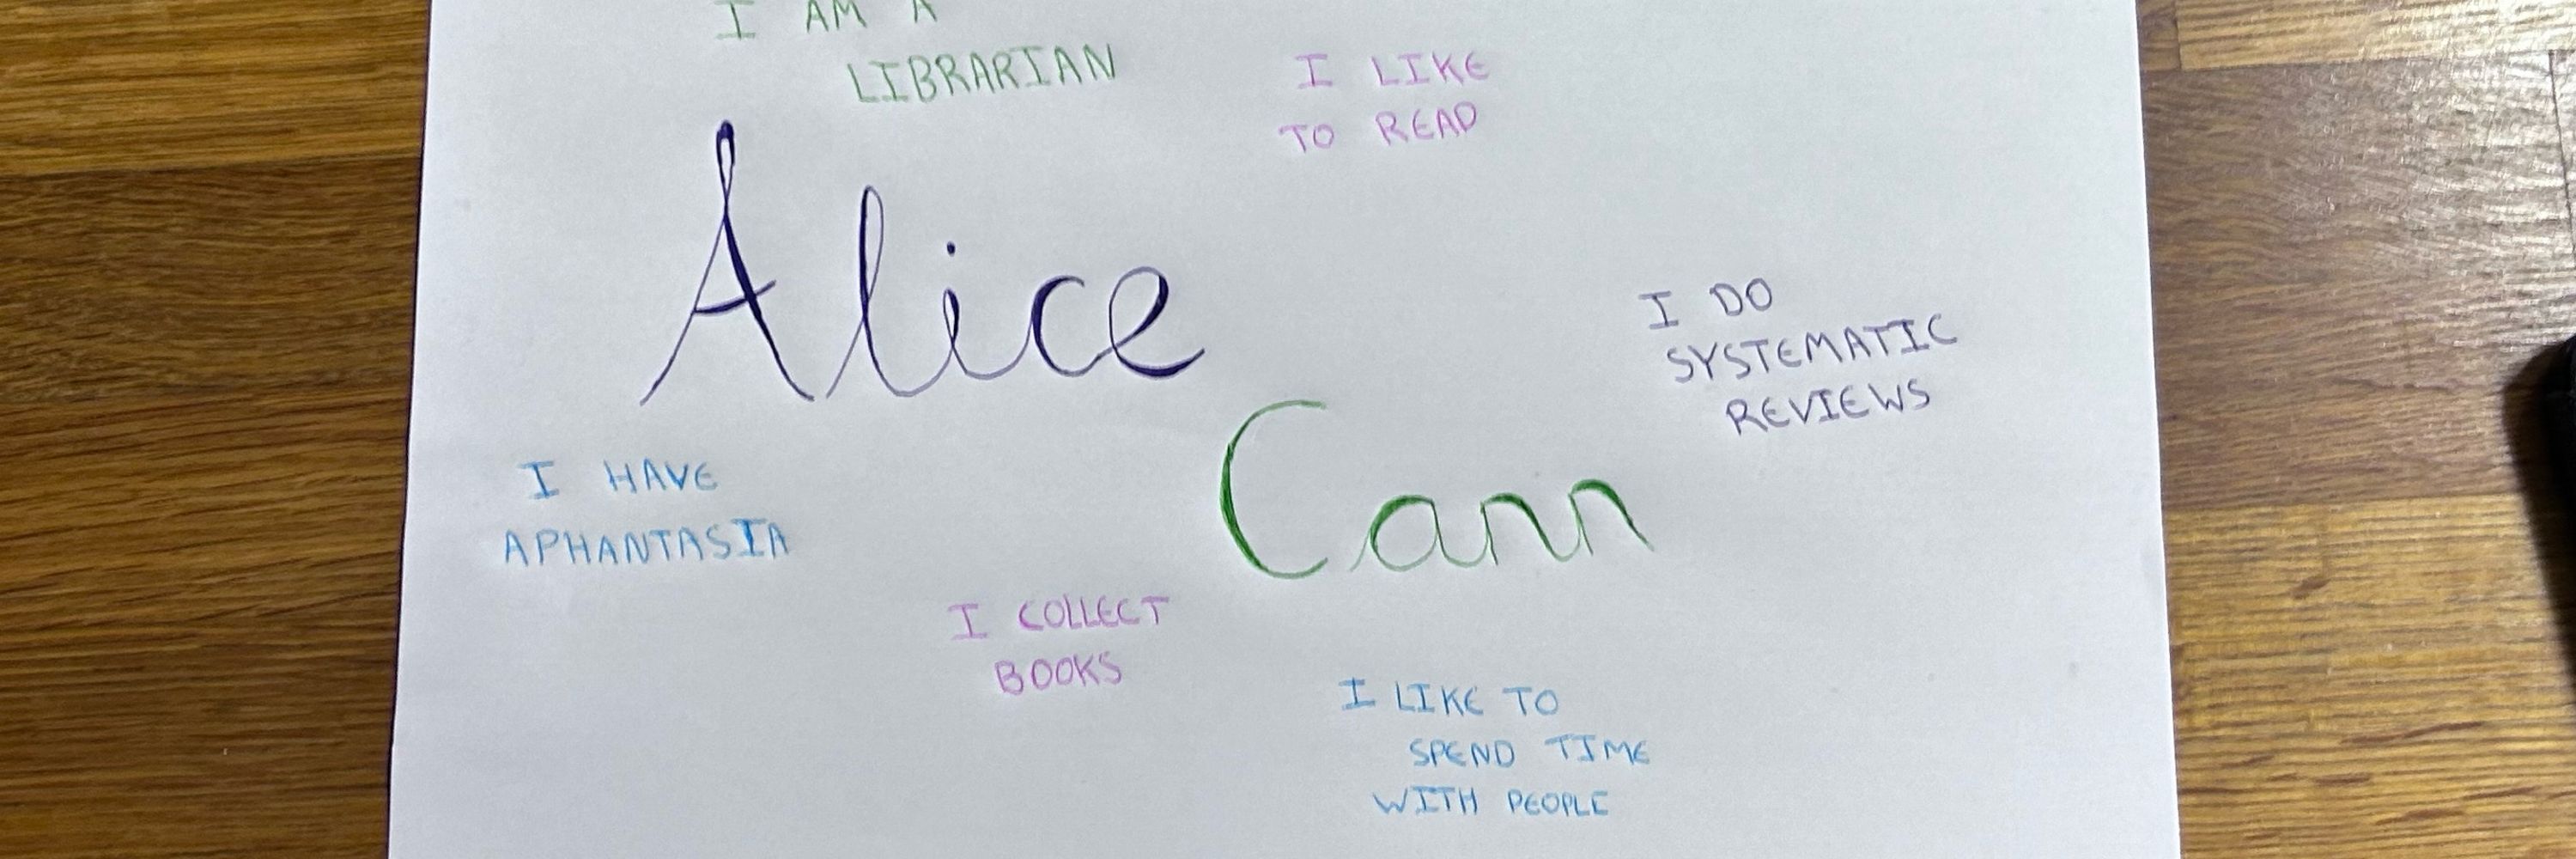 I AM A
LIBRARIAN
I LIKE
TO READ
Alice
I DO
SYSTEMATIC
REVIEWS
Cann
I HAVE
APHANTASIA
I COLLECT
BOOKS
I LIKE TO
SPEND TIME
WITH PEOPLE